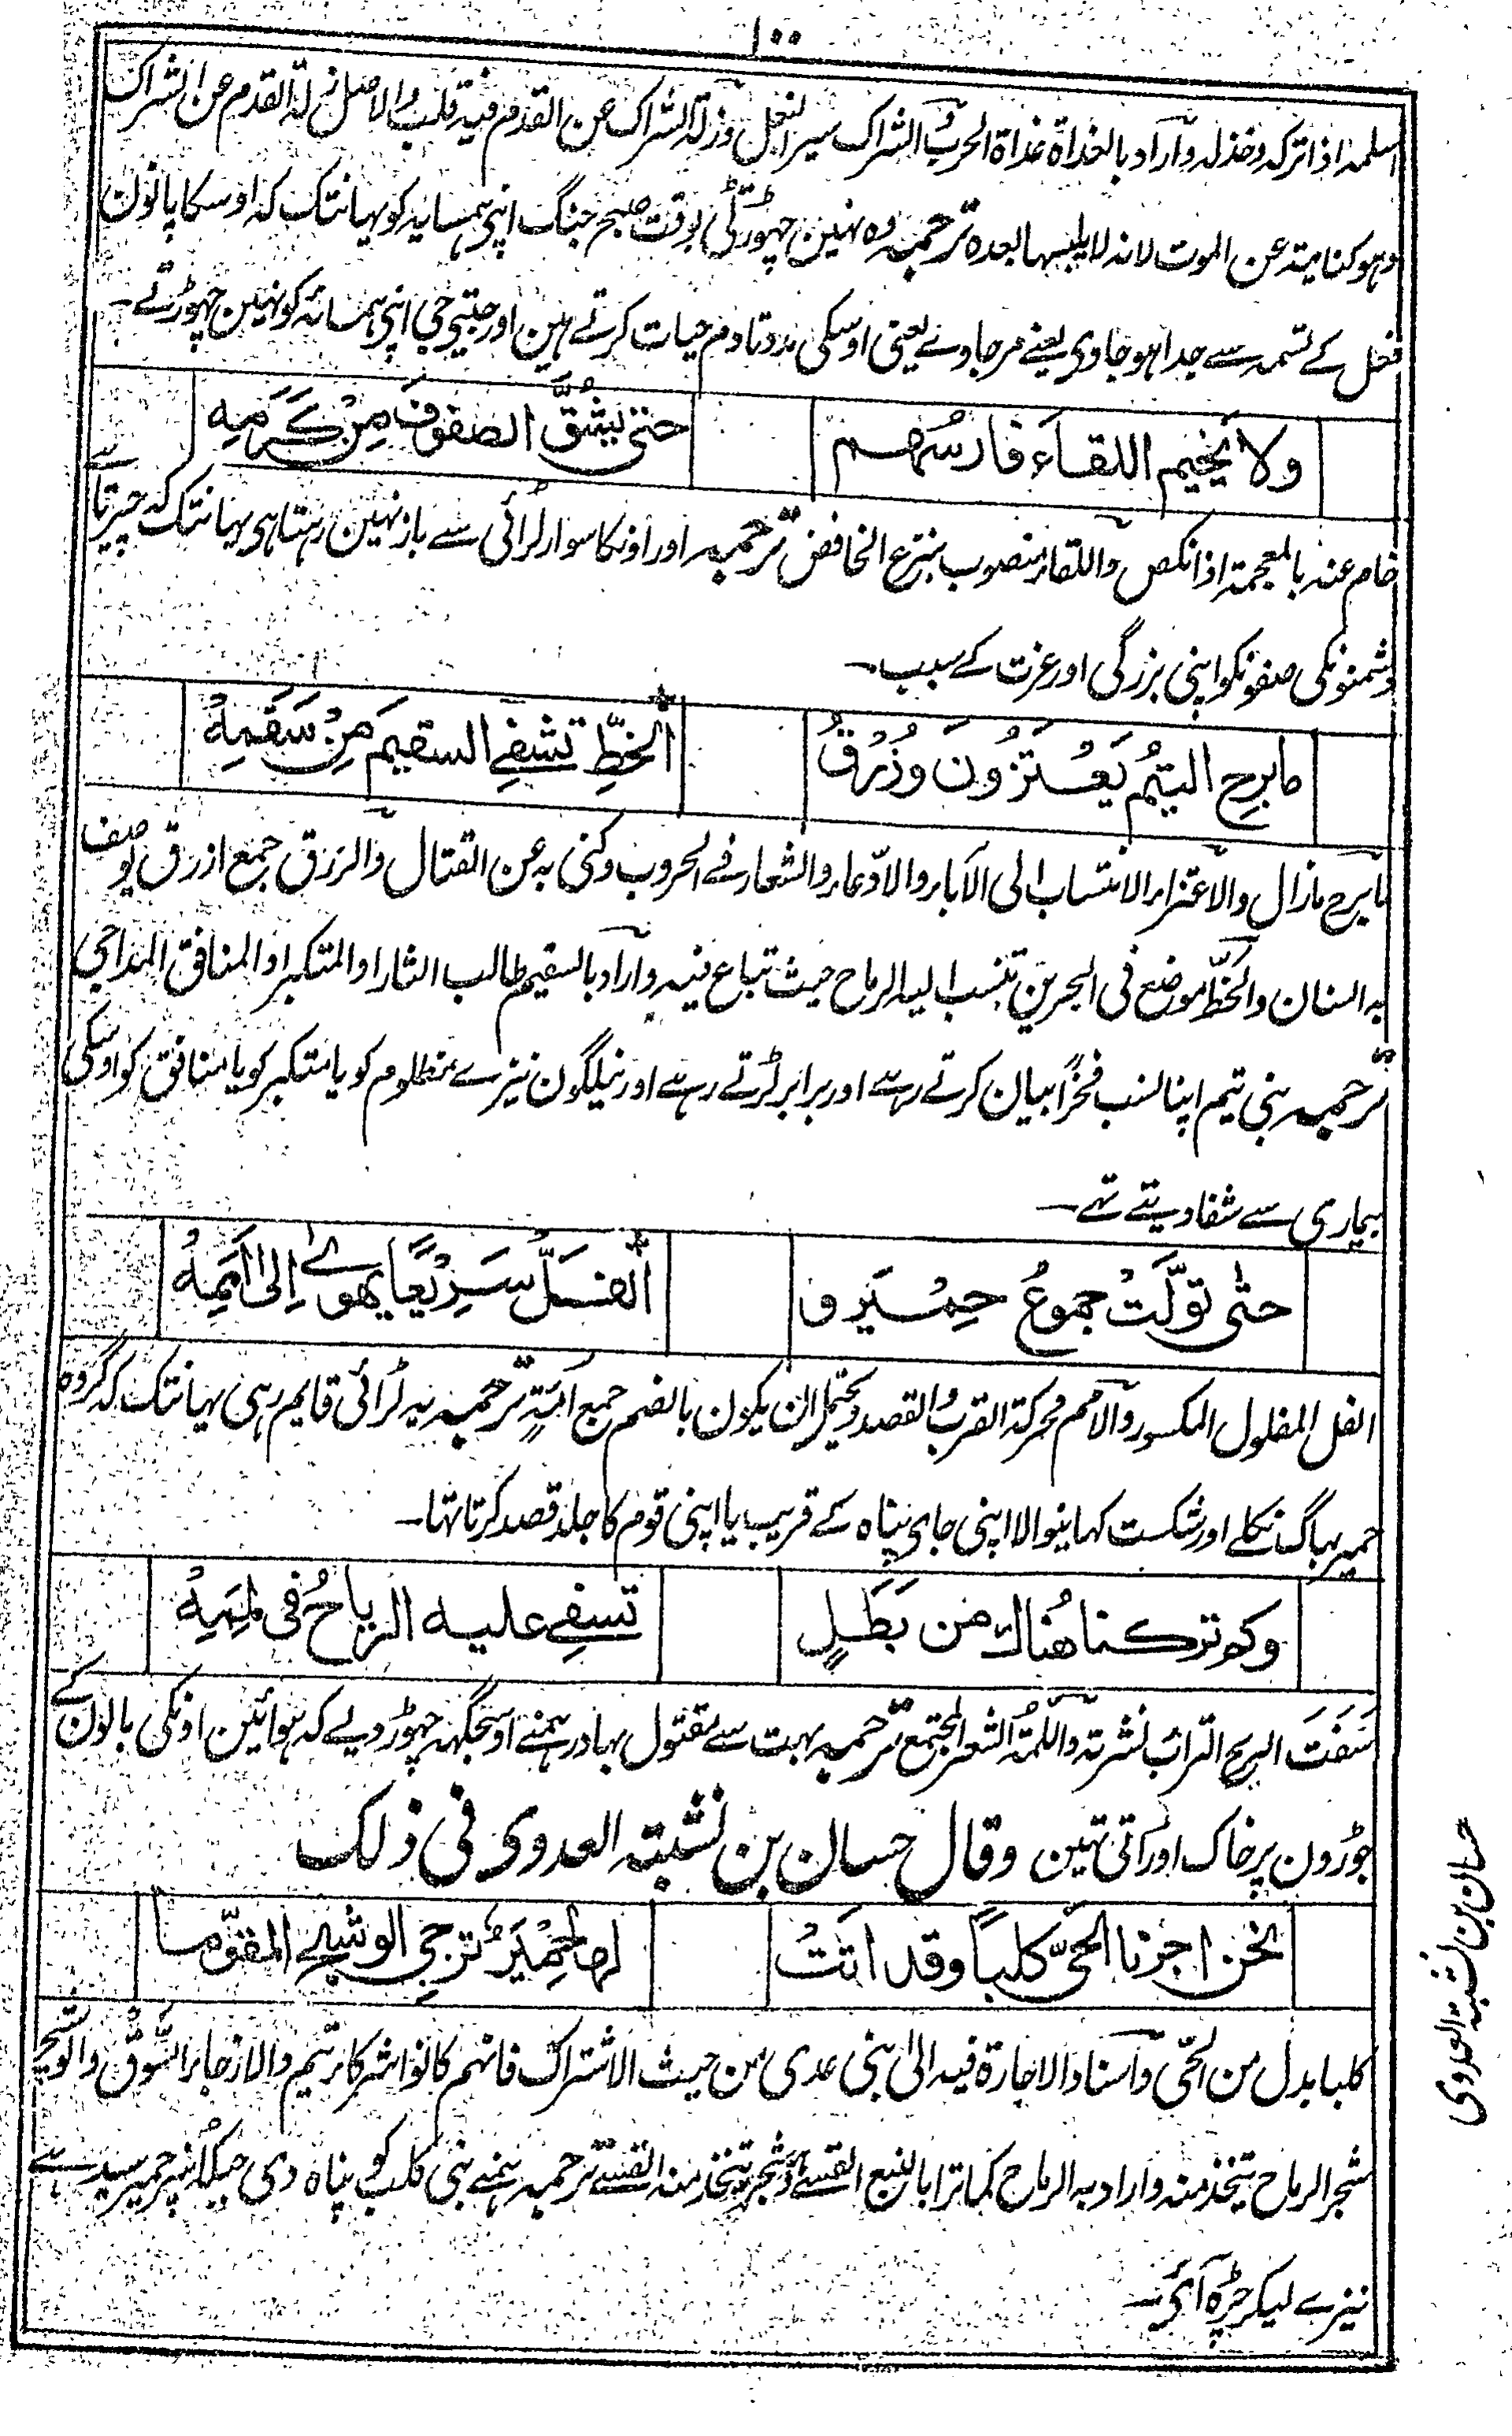 ۱۰۰
اسلمہ اذا ترکہ وخذلہ وآراد بالغداۃ غداۃ الحرب والشراک سیر النعل وزلۃ الشراک عن القدم فیہ قلب والاصل زلۃ القدم عن الشراک
وہو کنایتہ عن الموت لانہ لا یلبسہا بعدہ ترجمہ وہ نہین چہوڑتی بوقت صبح جنگ اپنی ہمسایہ کو یہانتک کہ اوسکا پانون
نعل کے تسمہ سے جدا ہو جاوی یعنے مر جاوے یعنی اوسکی مدد تا دم حیات کرتے ہین اور جیتی جی اپنی ہمسائہ کو نہین چہوڑتے۔
ولا یخیم اللقاء فارسُهم
حتی یشُقَّ الصفوفَ مِنْ کَرَمِهِ
خام عنہ بالمعجمۃ اذا نکص واللقاء منصوب بنزع الخافض ترجمہ اور اونکا سوار لڑائی سے باز نہین رہتا ہی یہانتک کہ چیرتا ہے
دشمنونکی صفونکو اپنی بزرگی اور عزت کے سبب۔
ما برِح التیمُ یَعْتَزُونَ وَزُرْقُ
الخَطِّ تشفِے السقیمَ مِنْ سَقَمِهْ
مابرح مازال والاعتزاء الانتساب الی الآباء والادعاء والشعار فے الحروب وکنی بہ عن القتال والزرق جمع ازرق یوصف
بہ السنان والخَطّ موضع فی البحرین تنسب الیہ الرماح حیث تباع فیہ وآراد بالسقیم طالب الثار او المتکبر او المنافق المداجی
ترجمہ بنی تیم اپنا نسب فخراً بیان کرتے رہے اور برابر لڑتے رہے اور نیلگون نیزے مظلوم کو یا متکبر کو یا منافق کو اوسکی
بیماری سے شفا دیتے تہے۔
حتی تولَّتْ جموعُ حِمْیَر و
الفَلُّ سَرِیْعًا یهوے إلی اَمَمِهْ
الفل المفلول المکسور والامم محرکۃ القرب والقصد ویحتمل ان یکون بالضم جمع اُمَّۃٍ ترجمہ یہ لڑائی قایم رہی یہانتک کہ گروہ
حمیر بہاگ نکلے اور شکست کہانیوالا اپنی جای پناہ کے قریب یا اپنی قوم کا جلد قصد کرتا تہا۔
وکم ترکنا هُناك من بَطَلٍ
تسفِے علیه الریاحُ فی لِمَمِهْ
سَفَت الریح التراب نشرتہ واللمۃ الشعر المجتمع ترجمہ بہت سے مقتول بہادر ہمنے اوسجگہہ چہوڑ دیے کہ ہوائین اونکی بالون کے
جوڑون پر خاک اوراتی تہین وقال حسان بن نشبتہ العدوی فی ذلک
نحن اجرنا الحیَّ کلباً وقد اتَتْ
لها حِمْیَرٌ تزجی الوشیجَ المقوّما
کلبا بدل من الحَیّ وآسناد الاجارۃ فیہ الیٰ بنی عدی من حیث الاشتراک فانہم کانوا شرکاء تیم والازجاء السَّوق والوشیج
شجر الرماح یتخذ منہ وارادبہ الرماح کما ترا بالنبع القسے وشجر یتخذ منہ القسے ترجمہ ہمنے بنی کلب کو پناہ دی جبکہ انپر حمیر سیدہے
نیزے لیکر چڑہ آئی۔
حسان بن نشبۃ العدوی